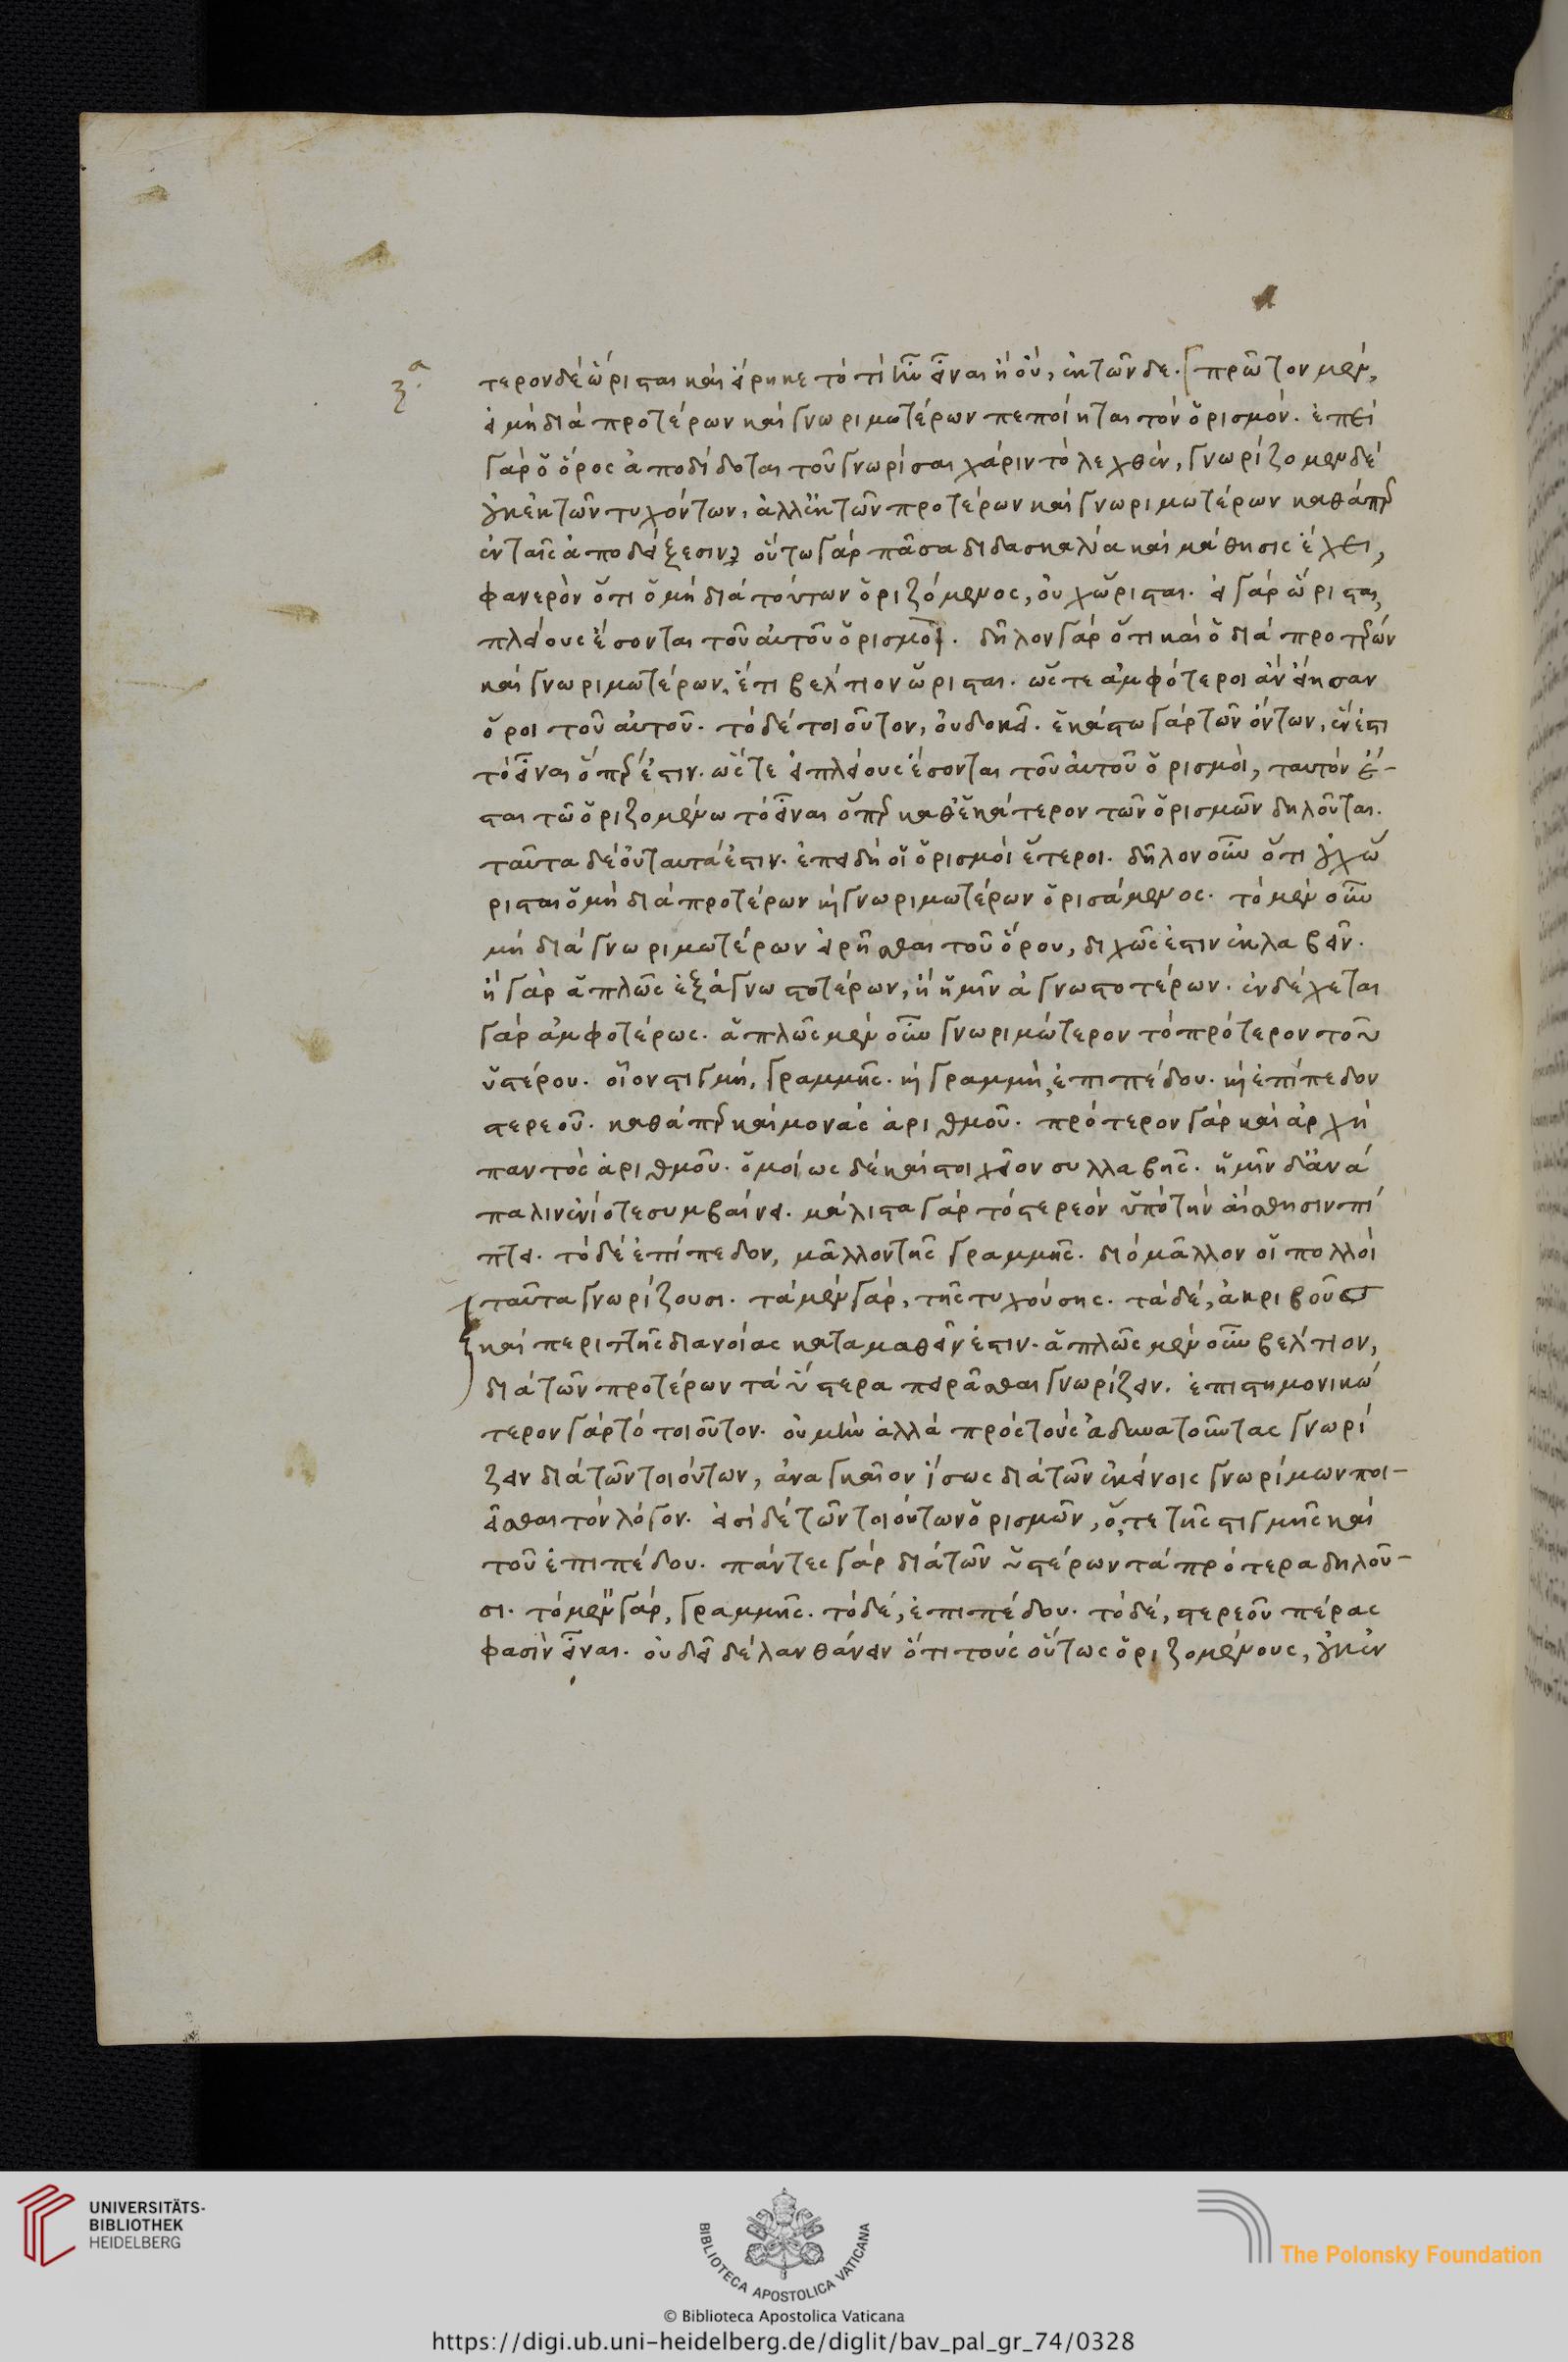 ξα τερον δὲ ὥρισται καὶ εἴρηκε τὸ τί ἦν εἶναι ἢ οὔ, ἐκ τῶν δε. πρῶτον μὲν,
εἰ μὴ διὰ προτέρων καὶ γνωριμωτέρων πεποίηται τὸν ὁρισμόν. ἐπεὶ
γὰρ ὁ ὅρος ἀποδίδοται τοῦ γνωρίσαι χάριν τὸ λεχθέν, γνωρίζομεν δὲ
οὐκ ἐκ τῶν τυχόντων, ἀλλ' ἐκ τῶν προτέρων καὶ γνωριμωτέρων καθάπερ
ἐν ταῖς ἀποδείξεσιν, οὕτω γὰρ πᾶσα διδασκαλία καὶ μάθησις ἔχει,
φανερὸν ὅτι ὁ μὴ διὰ τούτων ὁριζόμενος, οὐχ ὥρισται. εἰ γὰρ ὥρισται,
πλείους ἔσονται τοῦ αὐτοῦ ὁρισμοί. δῆλον γὰρ ὅτι καὶ ὁ διὰ προτέρων
καὶ γνωριμωτέρων, ἔτι βέλτιον ὥρισται. ὥστε ἀμφότεροι ἂν εἴησαν
ὅροι τοῦ αὐτοῦ. τὸ δὲ τοιοῦτον, οὐ δοκεῖ. ἑκάστω γὰρ τῶν ὄντων, ἕν ἐστι
τὸ εἶναι ὅπερ ἐστιν. ὥστε εἰ πλείους ἔσονται τοῦ αὐτοῦ ὁρισμοὶ, ταυτὸν ἔ-
σται τῶ ὁριζομένω τὸ εἶναι ὅπερ καθ' ἑκάτερον τῶν ὁρισμῶν δηλοῦται.
ταῦτα δὲ οὐ ταυτά ἐστιν. ἐπειδὴ οἱ ὁρισμοὶ ἕτεροι. δῆλον οὖν ὅτι οὐχ ὥ
ρισται ὁ μὴ διὰ προτέρων καὶ γνωριμωτέρων ὁρισάμενος. τὸ μὲν οὖν
μὴ διὰ γνωριμωτέρων εἰρῆσθαι τοῦ ὅρου, διχῶς ἐστιν ἐκλαβεῖν.
ἢ γὰρ ἁπλῶς ἐξ ἀγνωστοτέρων, ἢ ἡμῖν ἀγνωστοτέρων. ἐνδέχεται
γὰρ ἀμφοτέρως. ἁπλῶς μὲν οὖν γνωριμώτερον τὸ πρότερον τοῦ
ὑστέρου. οἷον στιγμὴ, γραμμῆς. καὶ γραμμὴ, ἐπιπέδου. καὶ ἐπίπεδον
στερεοῦ. καθάπερ καὶ μονὰς ἀριθμοῦ. πρότερον γὰρ καὶ ἀρχὴ
παντὸς ἀριθμοῦ. ὁμοίως δὲ καὶ στοιχεῖον συλλαβῆς. ἡμῖν δ' ἀνά
παλιν ἐνίοτε συμβαίνει. μάλιστα γὰρ τὸ στερεὸν ὑπὸ τὴν αἴσθησιν πί
πτει. τὸ δὲ ἐπίπεδον, μᾶλλον τῆς γραμμῆς. διὸ μᾶλλον οἱ πολλοὶ
ταῦτα γνωρίζουσι. τὰ μὲν γὰρ, τῆς τυχούσης. τὰ δὲ, ἀκριβοῦς
καὶ περιττῆς διανοίας καταμαθεῖν ἐστιν. ἁπλῶς μὲν οὖν βέλτιον,
διὰ τῶν προτέρων τὰ ὕστερα πειρᾶσθαι γνωρίζειν. ἐπιστημονικώ
τερον γὰρ τὸ τοιοῦτον. οὐ μὴν ἀλλὰ πρὸς τοὺς ἀδυνατοῦντας γνωρί
ζειν διὰ τῶν τοιούτων, ἀναγκαῖον ἴσως διὰ τῶν ἐκείνοις γνωρίμων ποι-
εῖσθαι τὸν λόγον. εἰσὶ δὲ τῶν τοιούτων ὁρισμῶν, ὅ, τε τῆς στιγμῆς καὶ
τοῦ ἐπιπέδου. πάντες γὰρ διὰ τῶν ὑστέρων τὰ πρότερα δηλοῦ-
σι. τὸ μὲν γὰρ, γραμμῆς. τὸ δὲ, ἐπιπέδου. τὸ δὲ, στερεοῦ πέρας
φασὶν εἶναι. οὐ δεῖ δὲ λανθάνειν ὅτι τοὺς οὕτως ὁριζομένους, οὐκ ἐν
UNIVERSITÄTS-
BIBLIOTHEK
HEIDELBERG
BIBLIOTECA APOSTOLICA VATICANA
The Polonsky Foundation
© Biblioteca Apostolica Vaticana
https://digi.ub.uni-heidelberg.de/diglit/bav_pal_gr_74/0328